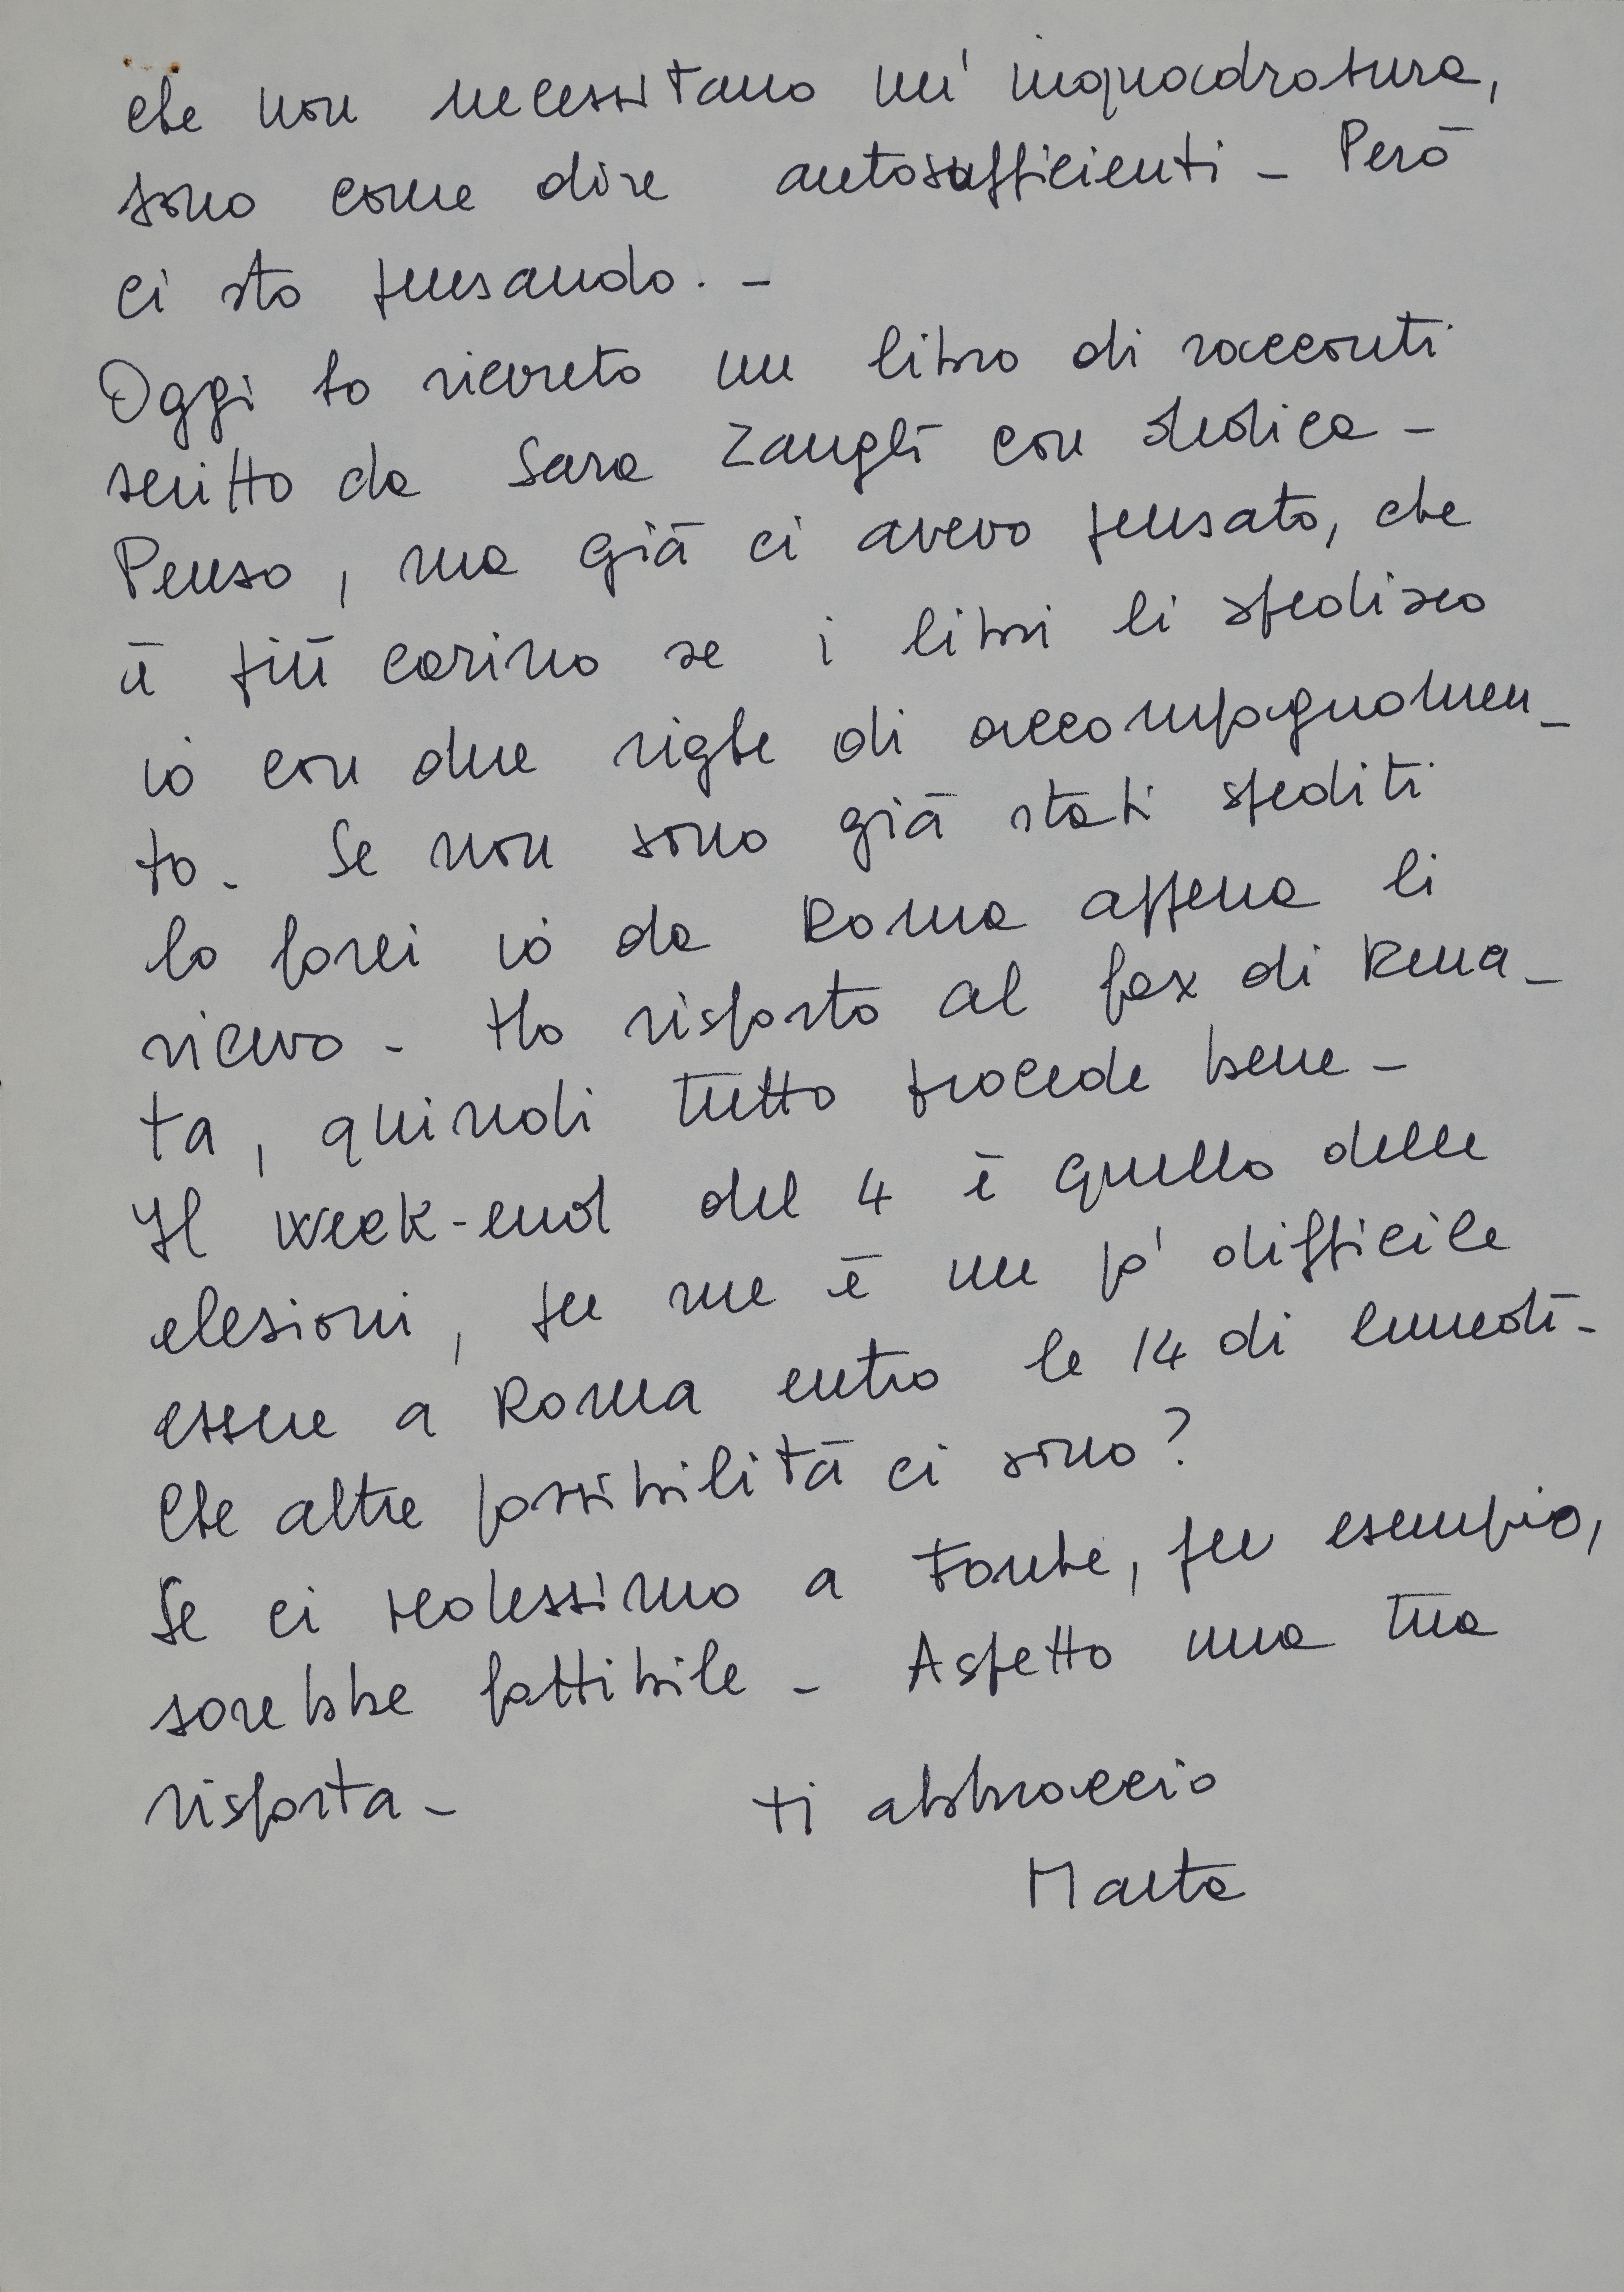 che non necessitano un' inquadratura,
sono come dire autosufficienti - Però
ci sto pensando. -
Oggi ho ricevuto un libro di racconti
scritto da Sara Zanghì con dedica -
Penso, ma già ci avevo pensato, che
è più carino se i libri li spedisco
io con due righe di accompagnamen-
to. Se non sono già stati spediti
lo farei io da Roma appena li
ricevo - Ho risposto al fax di Rena-
ta, quindi tutto procede bene -
Il week-end del 4 è quello delle
elezioni, per me è un po' difficile
essere a Roma entro le 14 di lunedì -
Che altre possibilità ci sono?
Se ci vedessimo a Fonte, per esempio,
sarebbe fattibile - Aspetto una tua
risposta - ti abbraccio
Marta